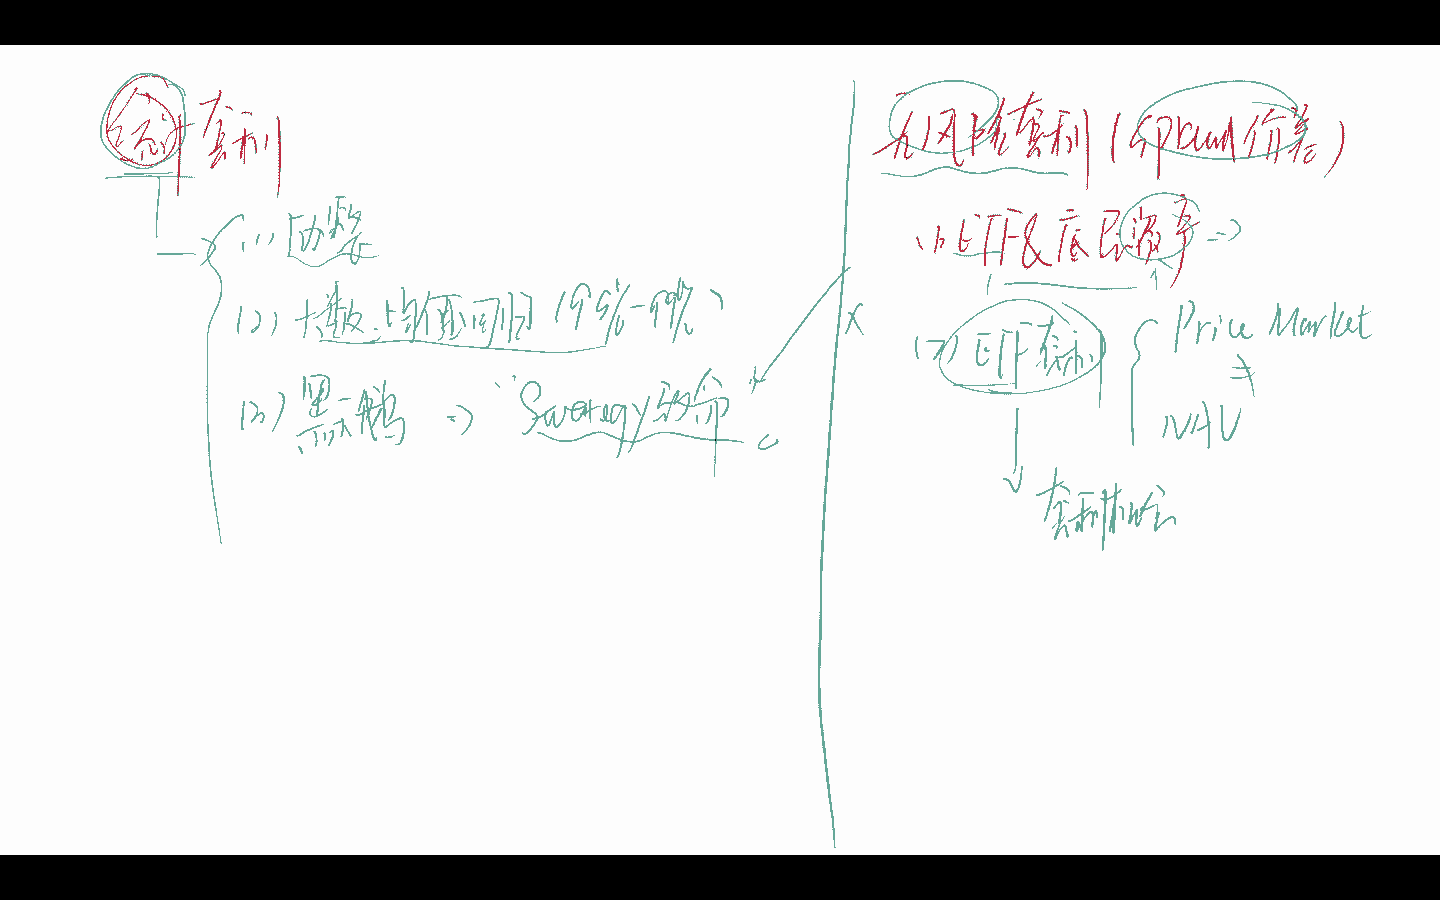 套利
(1) 协整
(2) 大数、均值回归 (95%-99%)
(3) 黑天鹅 => "Strategy 部分
无风险套利 (Spread 价差)
(1) ETF & 底层 =>
(2) ETF套利
Price Market
≠
NAV
套利机会